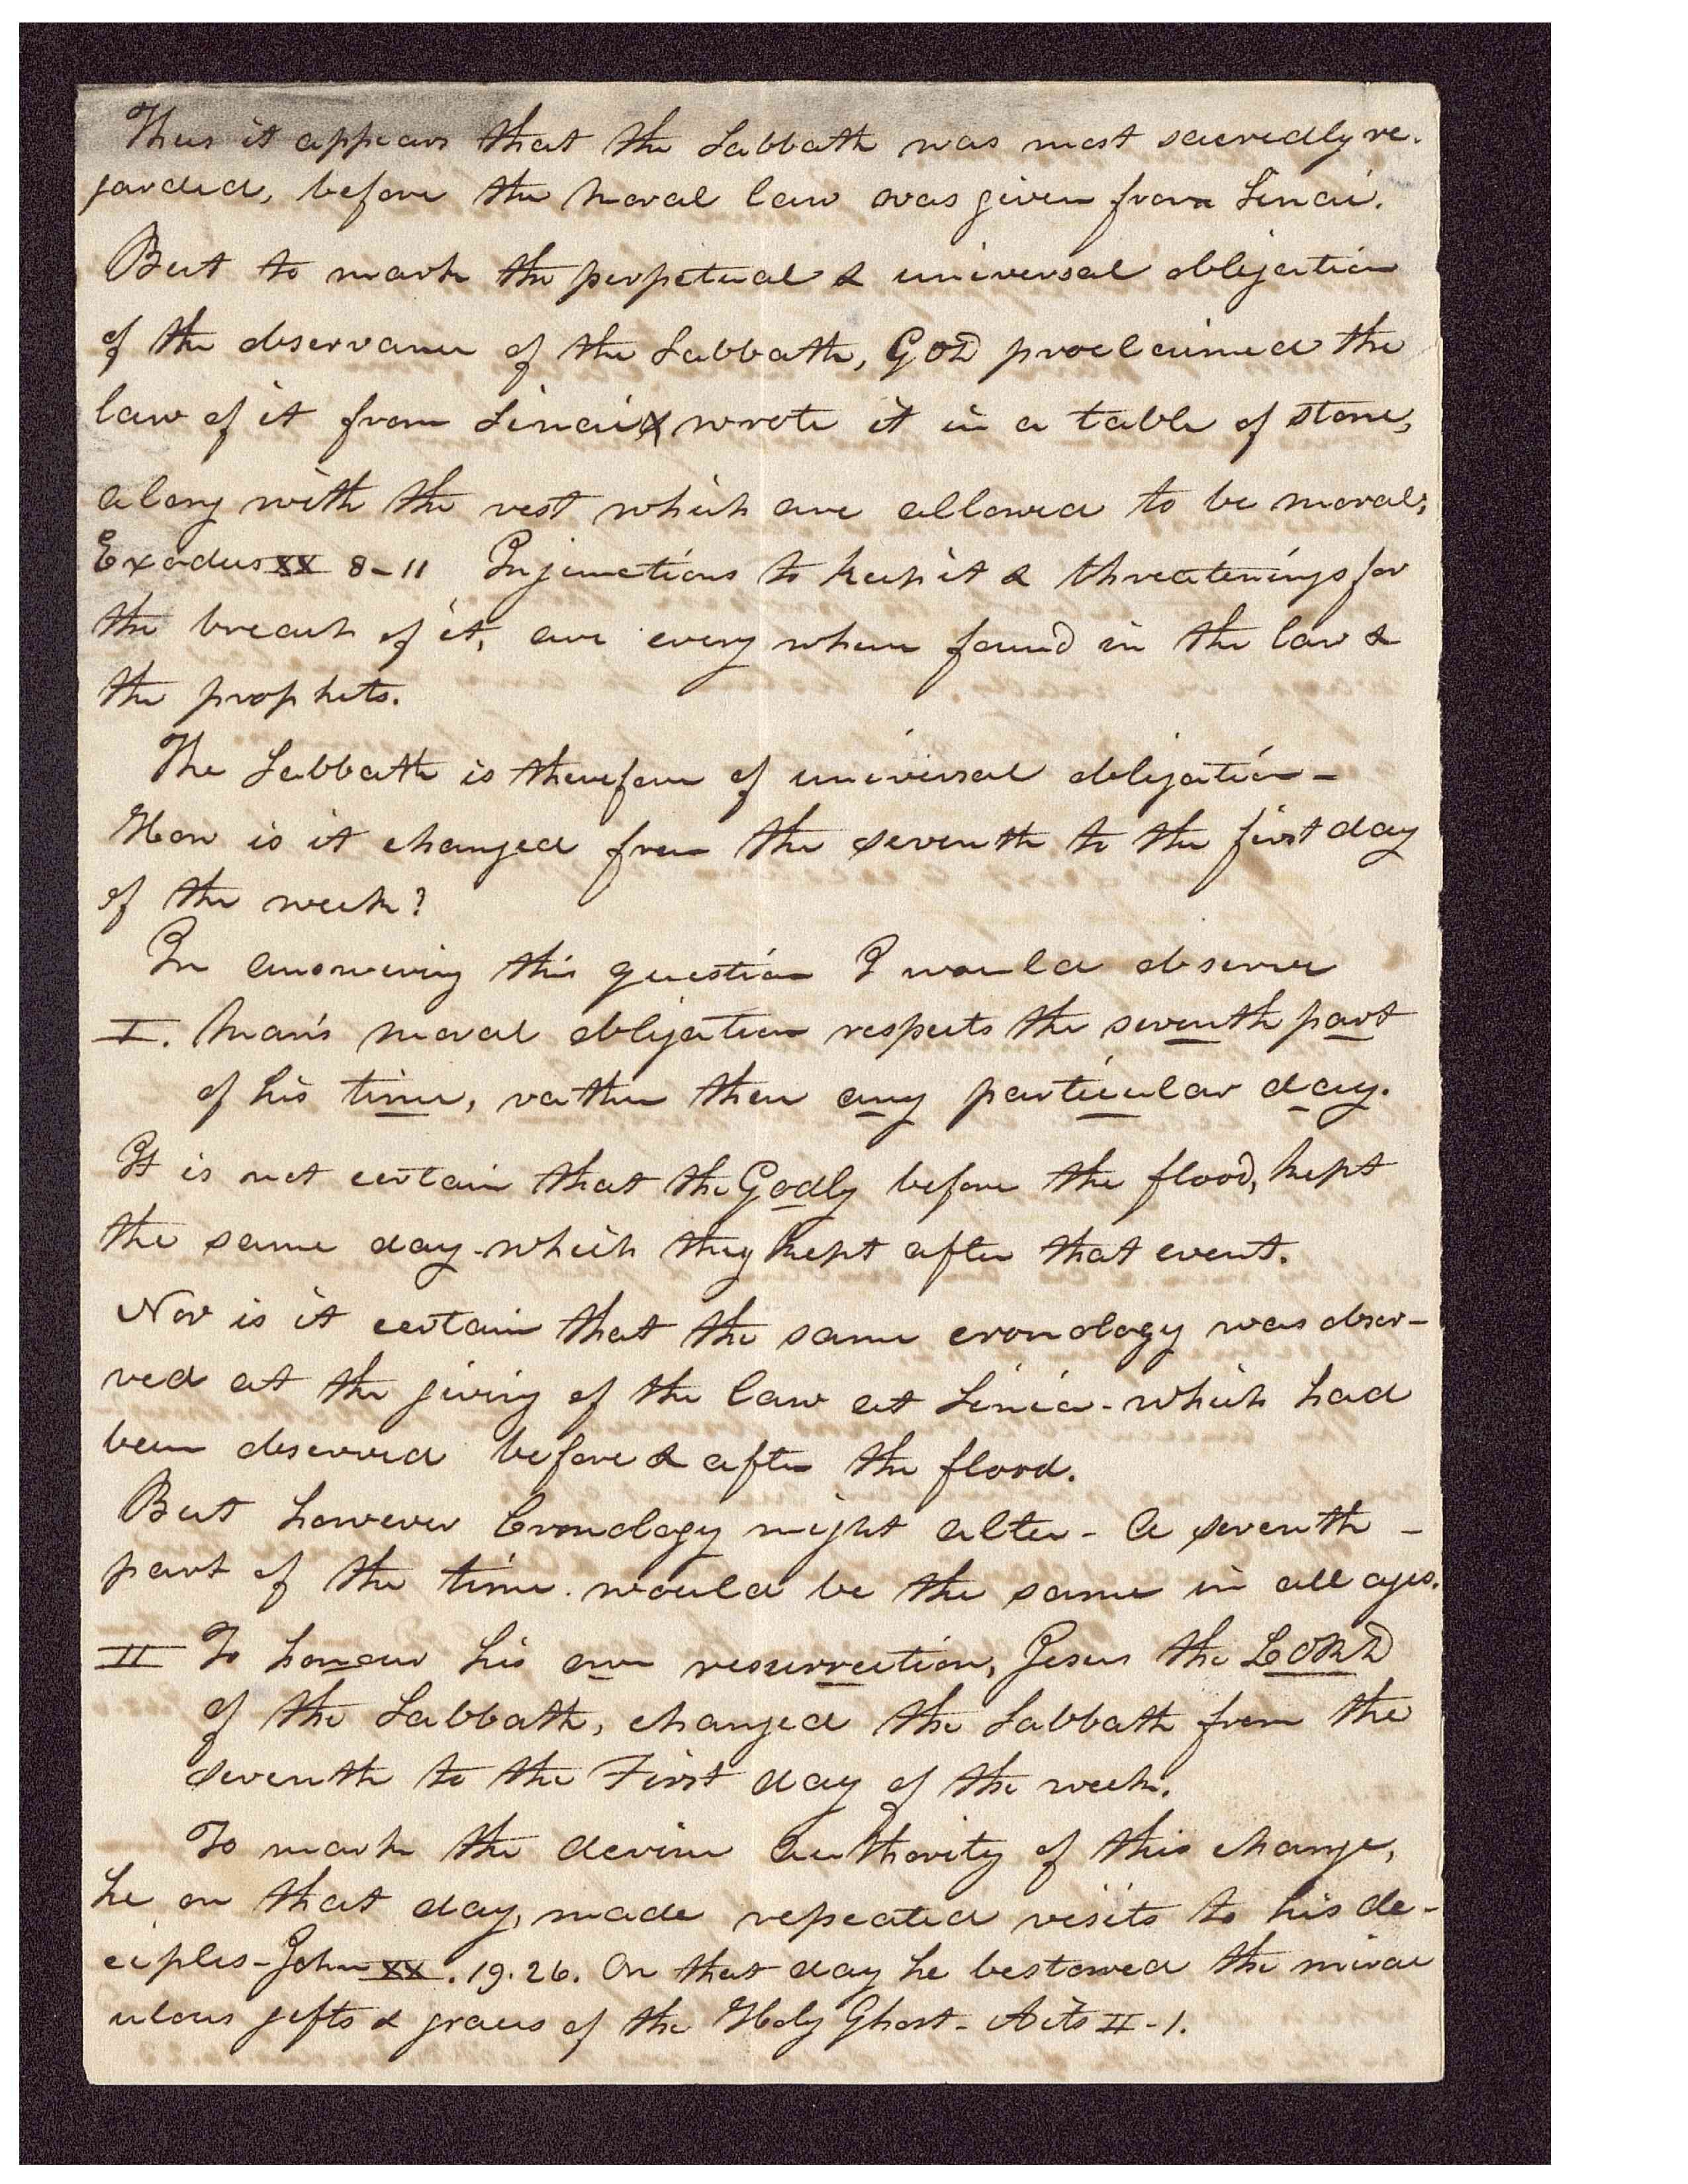 Thus it appears that the Sabbath was most sacredly re-
garded, before the moral law was given from Sinai.
But to mark the perpetual & universal obligation
of the observance of the Sabbath, GOD proclaimed the
law of it from Sinai & wrote it in a table of stone,
along with the rest which are allowed to be moral;
Exodus XX 8-11 Injunctions to keep it & threatenings for
the breach of it, are every where found in the law &
the prophets.
The Sabbath is therefore of universal obligation-
How is it changed from the seventh to the first day
of the week?
In answering this question I would observe
I. Man's moral obligation respects the seventh part
of his time, rather then any particular day.
It is not certain that the Godly before the flood, kept
the same day which they kept after that event.
Nor is it certain that the same cronology was obser-
ved at the giving of the law at Sinia - which had
been observed before & after the flood.
But however Cronology might alter - a seventh -
part of the time would be the same in all ages.
II To honour his own resurrection, Jesus the LORD
of the Sabbath, changed the Sabbath from the
seventh to the First day of the week.
To mark the devine authority of this change,
he on that day, made repeated visits to his de-
ciples - John XX. 19.26. On that day he bestowed the mirac
ulous gifts & graces of the Holy Ghost - Acts II-1.